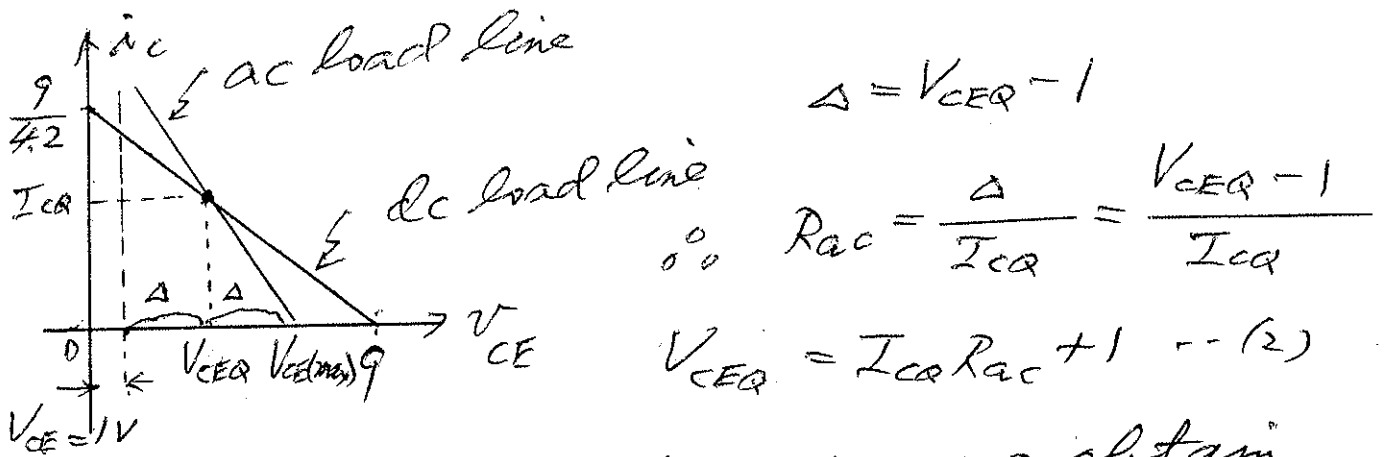 i_C
ac load line
9/4.2
I_CQ
dc load line
Δ Δ
0 V_CEQ V_CE(max) 9 v_CE
V_CE = 1V
Δ = V_CEQ - 1
∴ R_ac = Δ/I_CQ = (V_CEQ - 1)/I_CQ
V_CEQ = I_CQ R_ac + 1 -- (2)
obtain